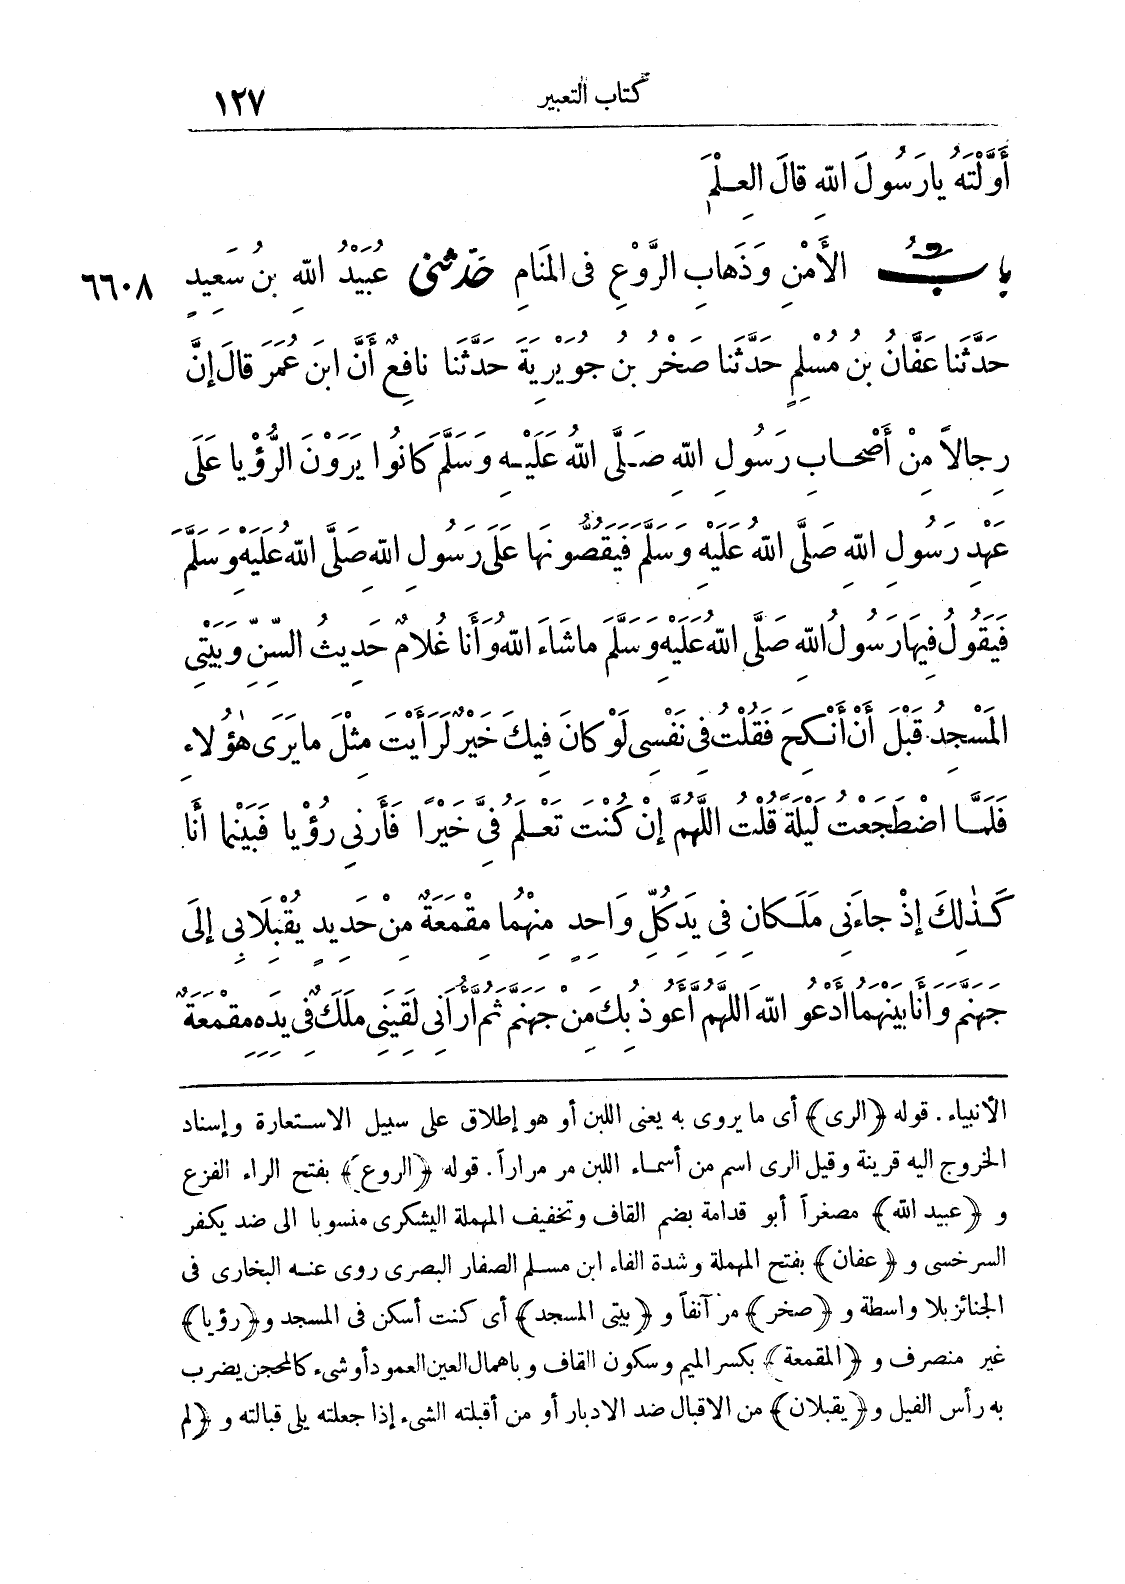 كتاب التعبير ١٢٧
أَوَّلْتَهُ يارَسُولَ اللّهِ قالَ العِلْمَ
بابُ الأَمْنِ وَذَهابِ الرَّوْعِ فى المَنَامِ حَدّثنى عُبَيْدُ اللّهِ بنُ سَعِيدٍ ٦٦٠٨
حَدَّثَنا عَفَّانُ بنُ مُسْلِمٍ حَدَّثَنا صَخْرُ بنُ جُوَيْرِيَةَ حَدَّثَنا نافِعٌ أَنَّ ابنَ عُمَرَ قالَ إنَّ
رِجالاً مِنْ أَصْحابِ رَسُولِ اللّهِ صَلَّى اللّهُ عَلَيْهِ وَسَلَّمَ كانُوا يَرَوْنَ الرُّؤْيا عَلَى
عَهْدِ رَسُولِ اللّهِ صَلَّى اللّهُ عَلَيْهِ وَسَلَّمَ فَيَقُصُّونَها عَلَى رَسُولِ اللّهِ صَلَّى اللّهُ عَلَيْهِ وَسَلَّمَ
فَيَقُولُ فِيهَا رَسُولُ اللّهِ صَلَّى اللّهُ عَلَيْهِ وَسَلَّمَ ماشَاءَ اللّهُ وَأَنا غُلامٌ حَدِيثُ السِّنِّ وَبَيْتِى
المَسْجِدُ قَبْلَ أَنْ أَنْكِحَ فَقُلْتُ فِى نَفْسِى لَوْ كانَ فِيكَ خَيْرٌ لَرَأَيْتَ مِثْلَ ما يَرَى هٰؤُلاءِ
فَلَمَّا اضْطَجَعْتُ لَيْلَةً قُلْتُ اللَّهُمَّ إنْ كُنْتَ تَعْلَمُ فِىَّ خَيْرًا فَأَرِنِى رُؤْيا فَبَيْنَما أَنَا
كَذٰلِكَ إذْ جاءَنِى مَلَكانِ فِى يَدِ كُلِّ وَاحِدٍ مِنْهُمَا مِقْمَعَةٌ مِنْ حَدِيدٍ يُقْبِلَانِى إلَى
جَهَنَّمَ وَأَنَا بَيْنَهُمَا أَدْعُو اللّهَ اللَّهُمَّ أَعُوذُ بِكَ مِنْ جَهَنَّمَ ثُمَّ أُرَانِى لَقِيَنِى مَلَكٌ فِى يَدِهِ مِقْمَعَةٌ
الأنبياء . قوله ﴿الرى﴾ أى ما يروى به يعنى اللبن أو هو إطلاق على سبيل الاستعارة وإسناد
الخروج اليه قرينة وقيل الرى اسم من أسماء اللبن مر مراراً . قوله ﴿الروع﴾ بفتح الراء الفزع
و ﴿عبيد الله﴾ مصغراً أبو قدامة بضم القاف وتخفيف المهملة اليشكرى منسوبا الى ضد يكفر
السرخسى و ﴿عفان﴾ بفتح المهملة وشدة الفاء ابن مسلم الصفار البصرى روى عنه البخارى فى
الجنائز بلا واسطة و ﴿صخر﴾ مر آنفاً و ﴿بيتى المسجد﴾ أى كنت أسكن فى المسجد و ﴿رؤيا﴾
غير منصرف و ﴿المقمعة﴾ بكسر الميم وسكون القاف وباهمال العين العمود أو شىء كالمحجن يضرب
به رأس الفيل و ﴿يقبلان﴾ من الاقبال ضد الادبار أو من أقبلته الشىء إذا جعلته يلى قبالته و ﴿لم